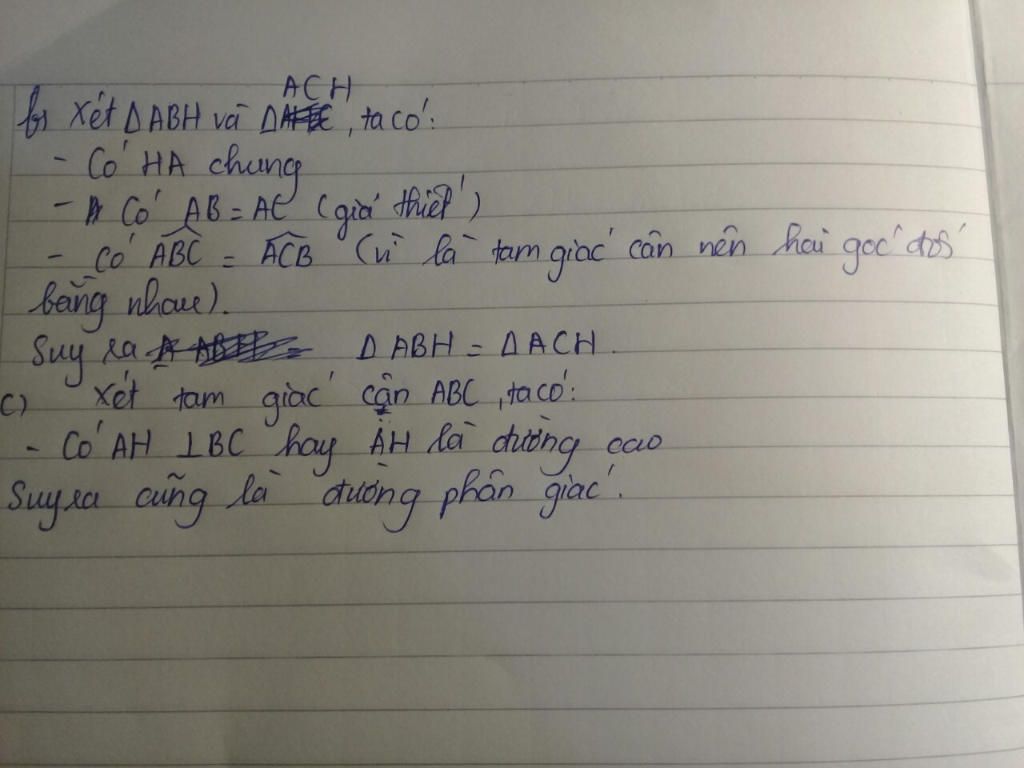 ACH
b) Xét ΔABH và Δ, ta có:
- Có HA chung
- Có AB = AC (giả thiết)
- Có ABC = ACB (vì là tam giác cân nên hai góc đó
bằng nhau).
Suy ra ΔABH = ΔACH.
c) Xét tam giác cân ABC, ta có:
- Có AH ⊥ BC hay AH là đường cao
Suy ra cũng là đường phân giác.